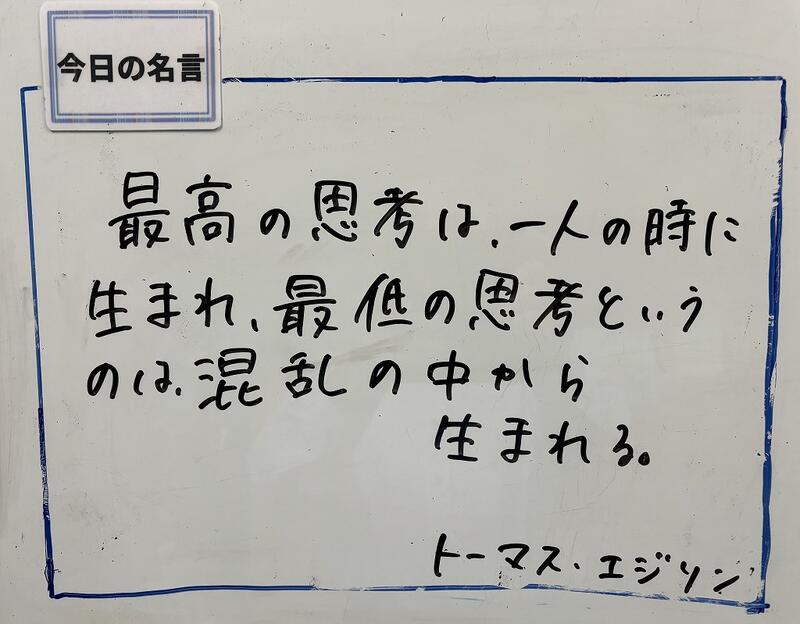 今日の名言
最高の思考は、一人の時に
生まれ、最低の思考という
のは、混乱の中から
生まれる。
トーマス・エジソン